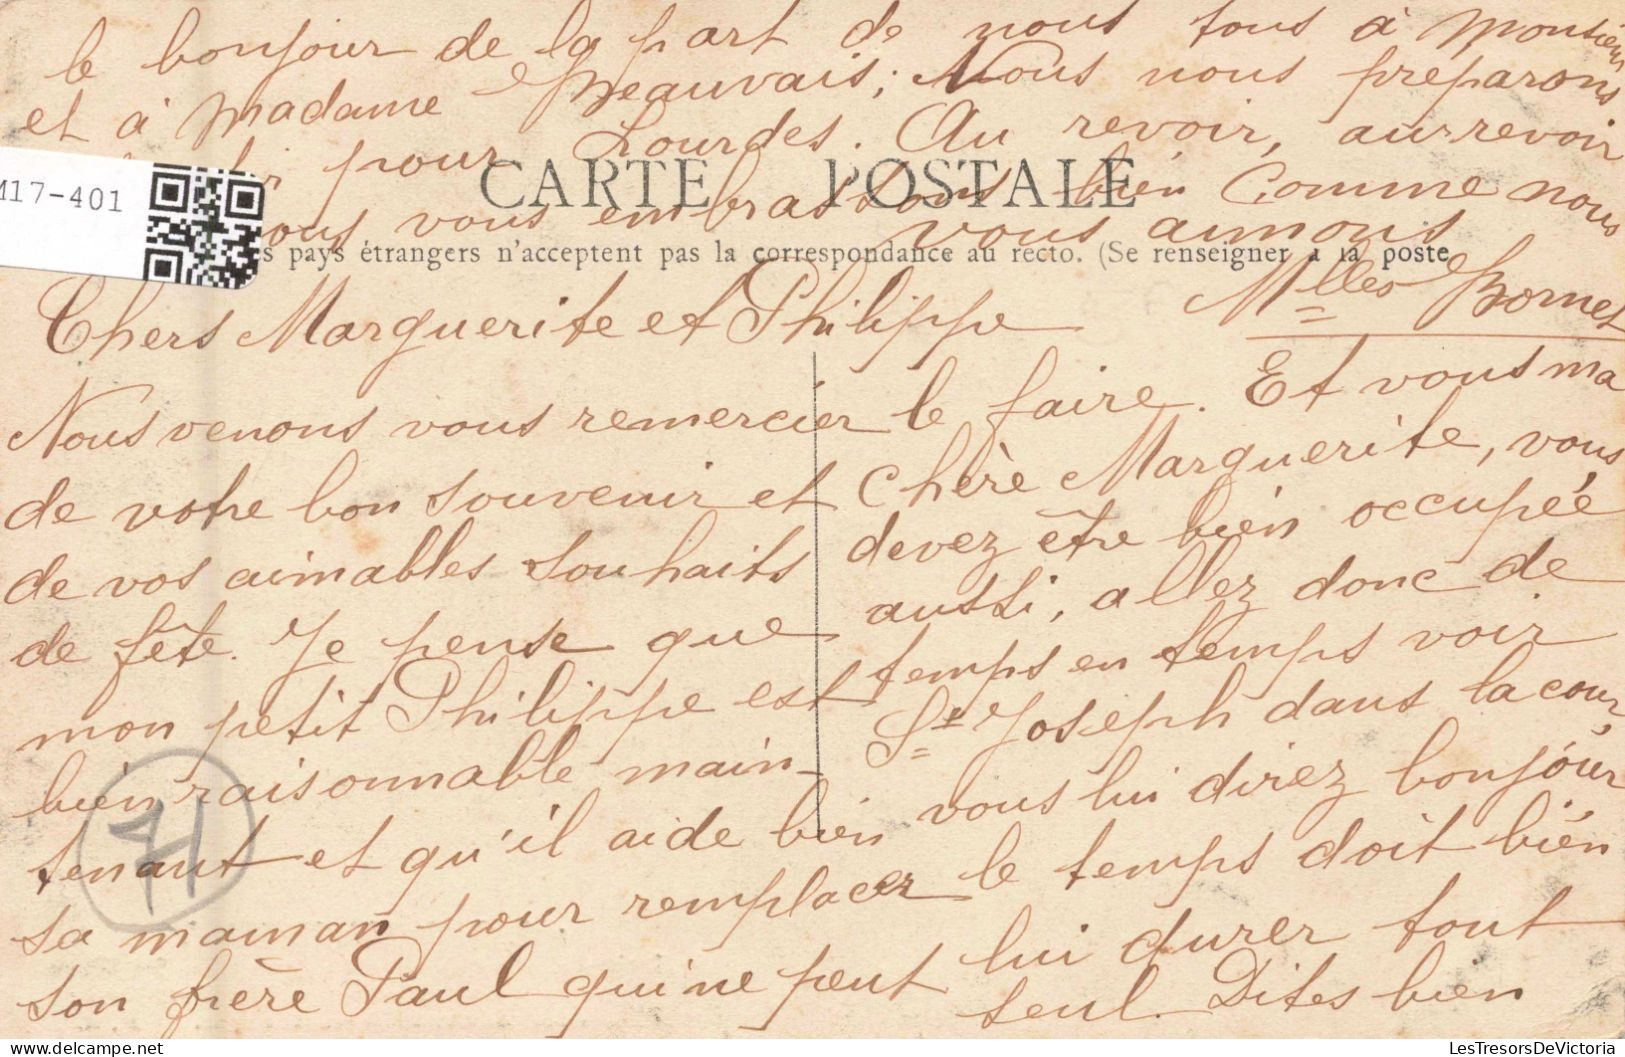 le bonjour de la part de nous tous à Monsieur
et à Madame Beauvais; Nous nous préparons
pour Lourdes. Au revoir, aurrevoir
nous vous embrassons bien Comme nous
vous aimons
Mlles Bornet
M17-401
CARTE POSTALE
pays étrangers n'acceptent pas la correspondance au recto. (Se renseigner à la poste
Chers Marguerite et Philippe
Nous venons vous remercier
de votre bon souvenir et
de vos aimables souhaits
de fête. Je pense que
mon petit Philippe est
bien raisonnable main-
tenant et qu'il aide bien
sa maman pour remplacer
son frère Paul qui ne peut
le faire. Et vous ma
Chère Marguerite, vous
devez être bien occupée
aussi, allez donc de
temps en temps voir
St Joseph dans la cour,
vous lui direz bonjour
le temps doit bien
lui durer tout
seul. Dites bien
71
LesTresorsDeVictoria.com